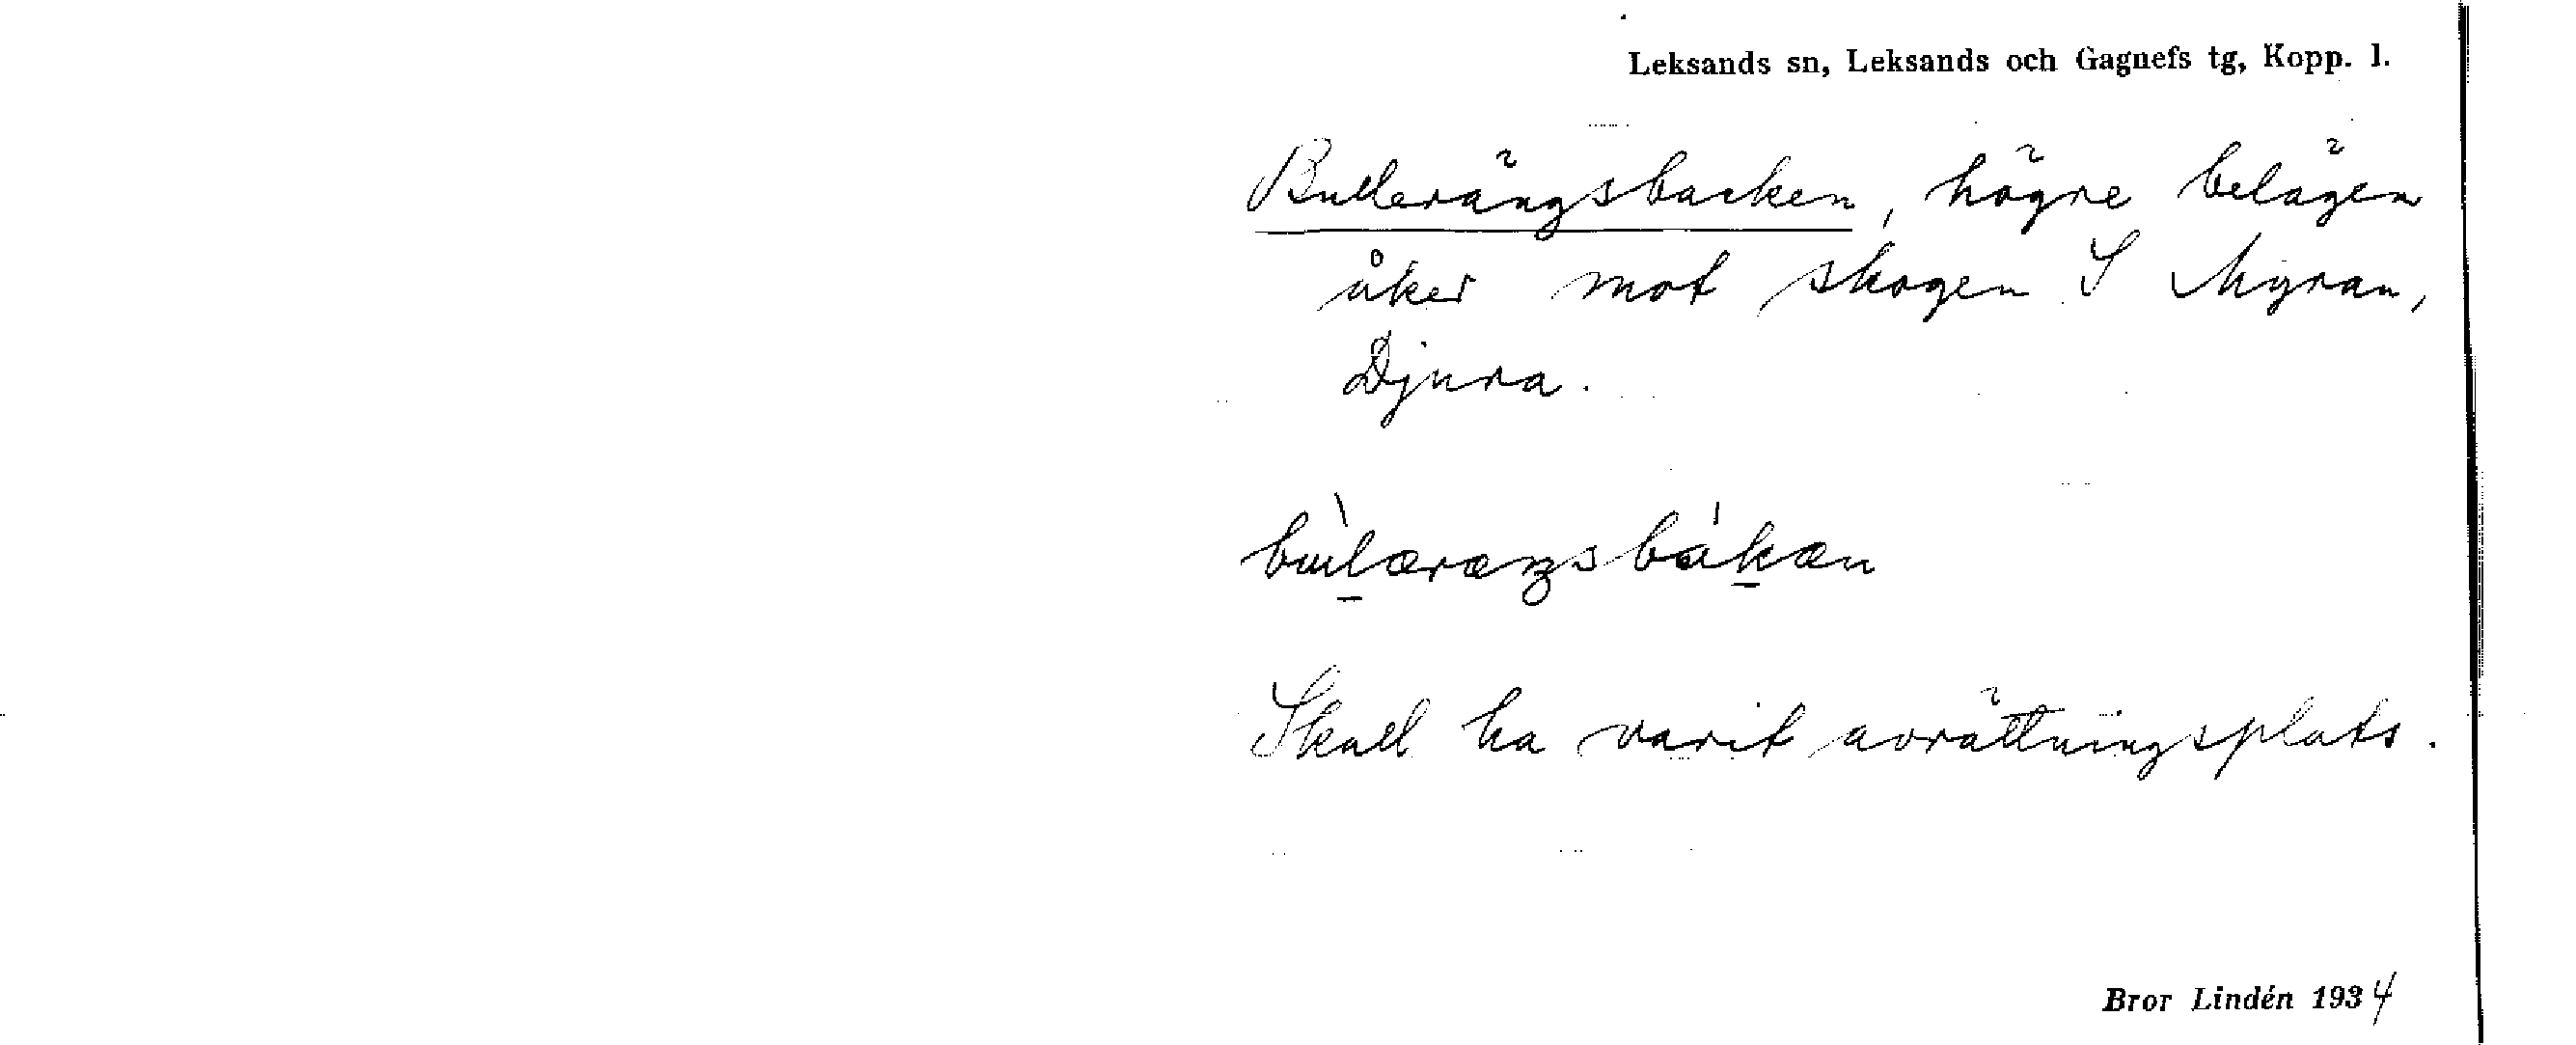 Leksands sn, Leksands och Gagnefs tg, Kopp. l.
Bullerängsbacken, högre belägen
åker mot skogen S Myran,
Djura.
bùl̠æræŋsbák̠æn
Skall ha varit avrättningsplats.
Bror Lindén 1934